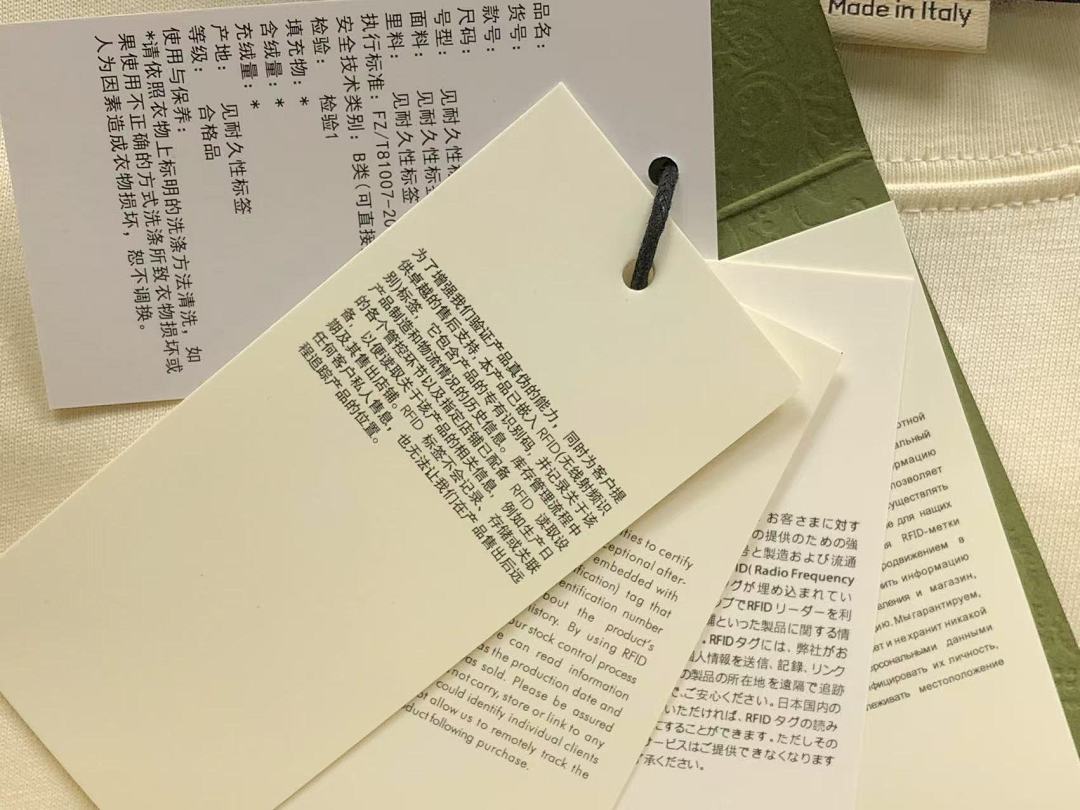 Made in Italy
品名：
货号：
款号：
尺码：
号型： 见耐久性标
面料： 见耐久性标签
里料： 见耐久性标签
执行标准：FZ/T81007-20
安全技术类别：B类(可直接
检验： 检验1
填充物：*
含绒量：*
充绒量：*
产地： 见耐久性标签
等级： 合格品
使用与保养：
*请依照衣物上标明的洗涤方法清洗，如
果使用不正确的方式洗涤所致衣物损坏或
人为因素造成衣物损坏，恕不调换。
为了增强我们验证产品真伪的能力，同时为客户提
供卓越的售后支持，本产品已嵌入 RFID(无线射频识
别)标签，它包含产品的专有识别码，并记录关于该
产品制造和物流情况的历史信息。库存管理流程中
的各个管控环节以及指定店铺已配备 RFID 读取设
备，以便读取关于该产品的相关信息，例如生产日
期及其售出店铺。RFID 标签不会记录、存储或关联
任何客户私人信息，也无法让我们在产品售出后远
程追踪产品的位置。
ties to certify
ceptional after-
embedded with
fication) tag that
entification number
bout the product's
history. By using RFID
our stock control process
e can read information
as the production date and
as sold. Please be assured
not carry, store or link to any
could identify individual clients
ot allow us to remotely track the
duct following purchase.
お客さまに対す
の提供のための強
号と製造および流通
ID( Radio Frequency
グが埋め込まれてい
ップでRFIDリーダーを利
舗といった製品に関する情
。RFIDタグには、弊社がお
個人情報を送信、記録、リンク
の製品の所在地を遠隔で追跡
で、ご安心ください。日本国内の
いただければ、RFIDタグの読み
にすることができます。ただしその
サービスはご提供できなくなります
了承ください。
отной
альный
рмацию
позволяет
уществлять
е для нащих
я RFID-метки
родвижением в
ить информацию
вления и магазин,
ию. Мы гарантируем,
ет и не хранит никакой
рсональными данными
фицировать их личность,
леживать местоположение